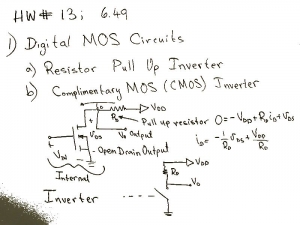 HW# 13; 6.49
1) Digital MOS Circuits
a) Resistor Pull Up Inverter
b) Complimentary MOS (CMOS) Inverter
VDD
RD
Pull up resistor 0=-VDD+RDiD+VDS
+
VDS
VO Output
iD=-1/RD VDS+VDD/RD
+
VIN
Open Drain Output
-
Internal
VDD
RD
VO
Inverter